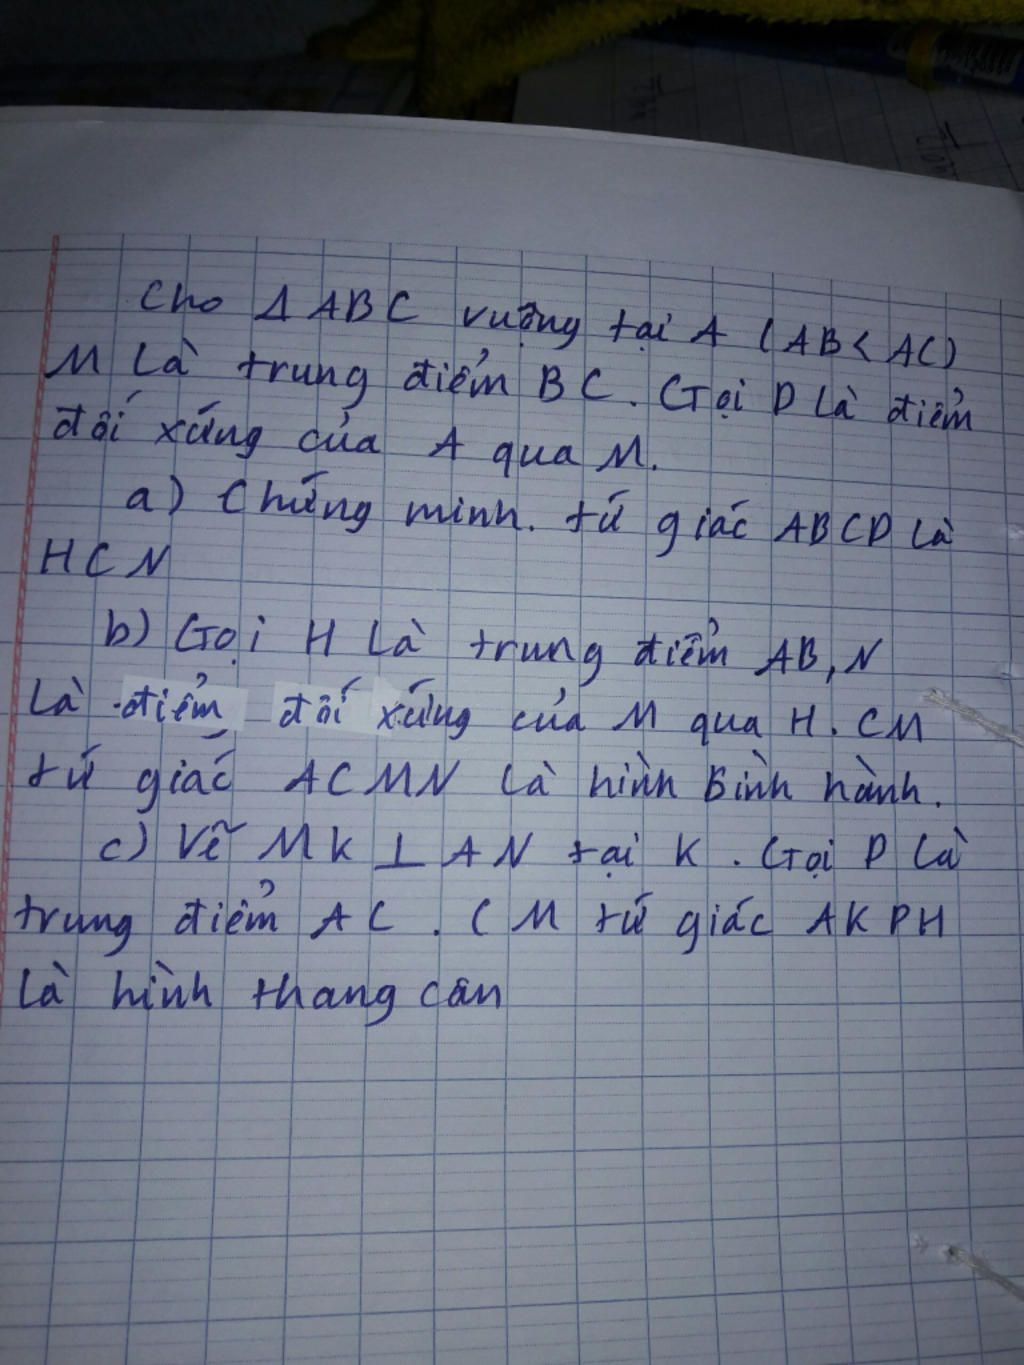 Cho Δ ABC vuông tại A (AB < AC)
M là trung điểm BC. Gọi D là điểm
đối xứng của A qua M.
a) Chứng minh. tứ giác ABCD là
HCN
b) Gọi H là trung điểm AB, N
là điểm đối xứng của M qua H. CM
tứ giác ACMN là hình bình hành.
c) Vẽ MK ⊥ AN tại K. Gọi P là
trung điểm AC. CM tứ giác AKPH
là hình thang cân